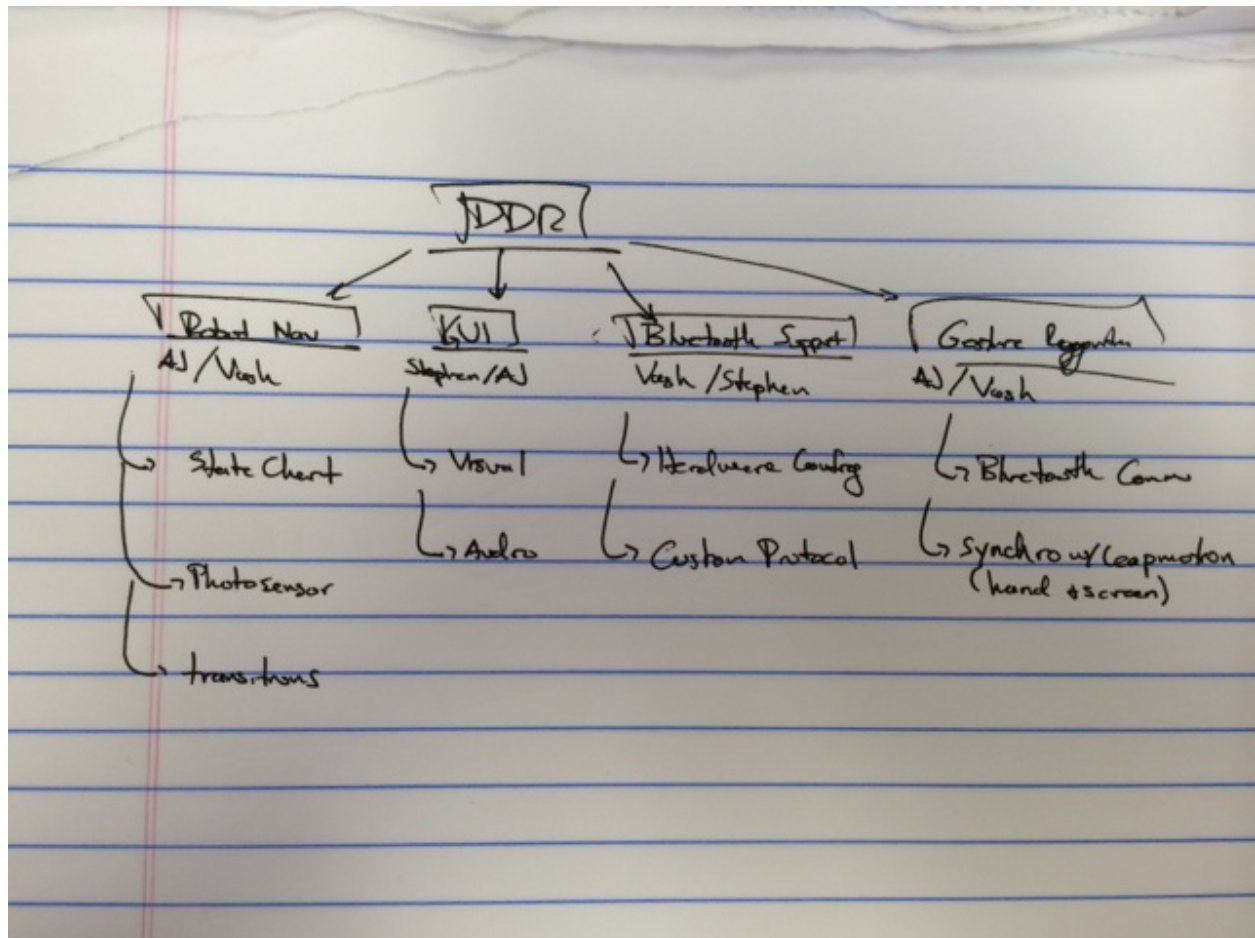 DDR
Robot Nav
AJ/Vash
State Chart
Photosensor
transitions
GUI
Stephen/AJ
Visual
Audio
Bluetooth Support
Vash/Stephen
Hardware Config
Custom Protocol
Gesture Recognition
AJ/Vash
Bluetooth Comm
Synchro w/ Leapmotion
(hand + screen)